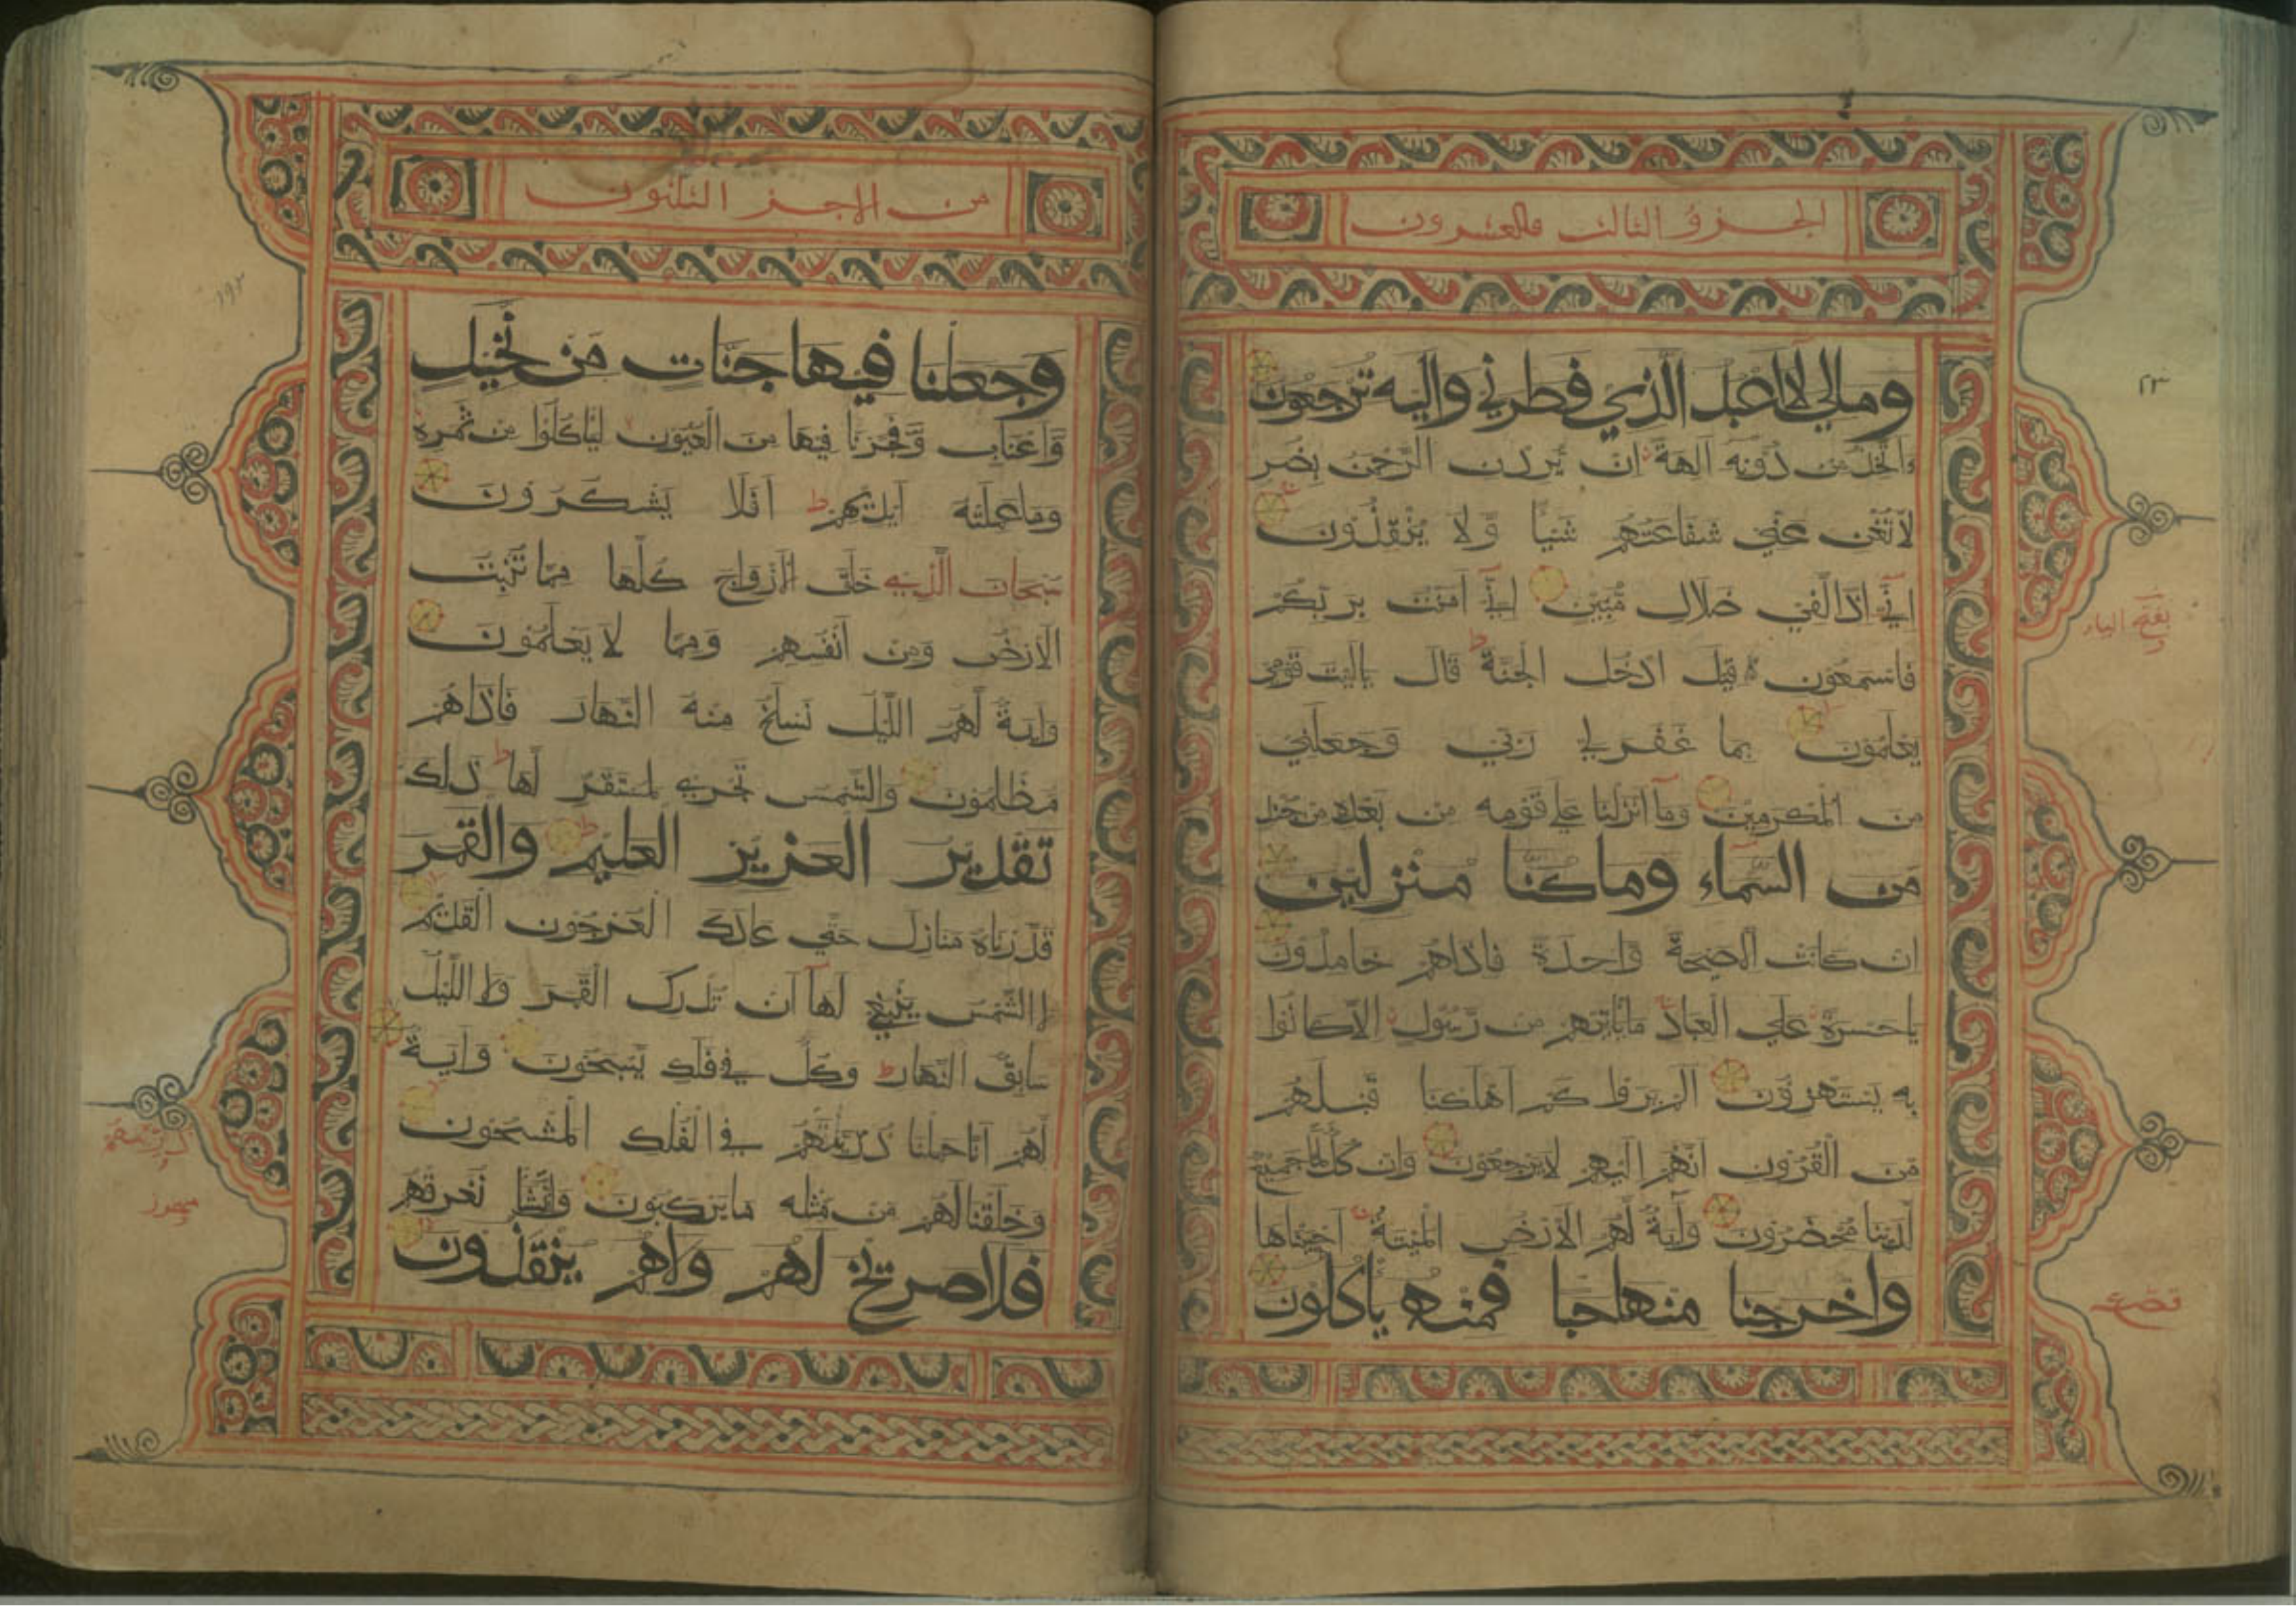 الجزؤ الثالث والعشرون
ومالي لا اعبد الذي فطرني واليه ترجعون
ءاتخذ من دونه آلهة ان يردن الرحمن بضر
لا تغن عني شفاعتهم شيئا ولا ينقذون
اني اذا لفي ضلال مبين اني آمنت بربكم
فاسمعون قيل ادخل الجنة قال ياليت قومي
يعلمون بما غفر لي ربي وجعلني
من المكرمين وما انزلنا على قومه من بعده من جند
من السماء وما كنا منزلين
ان كانت الا صيحة واحدة فاذاهم خامدون
ياحسرة علي العباد ما ياتيهم من رسول الا كانوا
به يستهزؤن الم يروا كم اهلكنا قبلهم
من القرون انهم اليهم لا يرجعون وان كل لما جميع
لدينا محضرون وآية لهم الارض الميتة احييناها
واخرجنا منها حبا فمنه ياكلون
٢٣
بفتح الياء
من الاجزء الثلثون
وجعلنا فيها جنات من نخيل
واعناب وفجرنا فيها من العيون لياكلوا من ثمره
وما عملته ايديهم افلا يشكرون
سبحان الذي خلق الازواج كلها مما تنبت
الارض ومن انفسهم ومما لا يعلمون
واية لهم الليل نسلخ منه النهار فاذاهم
مظلمون والشمس تجري لمستقر لها ذلك
تقدير العزيز العليم والقمر
قدرناه منازل حتي عادك العرجون القديم
لا الشمس ينبغي لها ان تدرك القمر ولا الليل
سابق النهار وكل في فلك يسبحون واية
لهم انا حملنا ذريتهم في الفلك المشحون
وخلقنا لهم من مثله ما يركبون وان نشا نغرقهم
فلا صريخ لهم ولاهم ينقذون